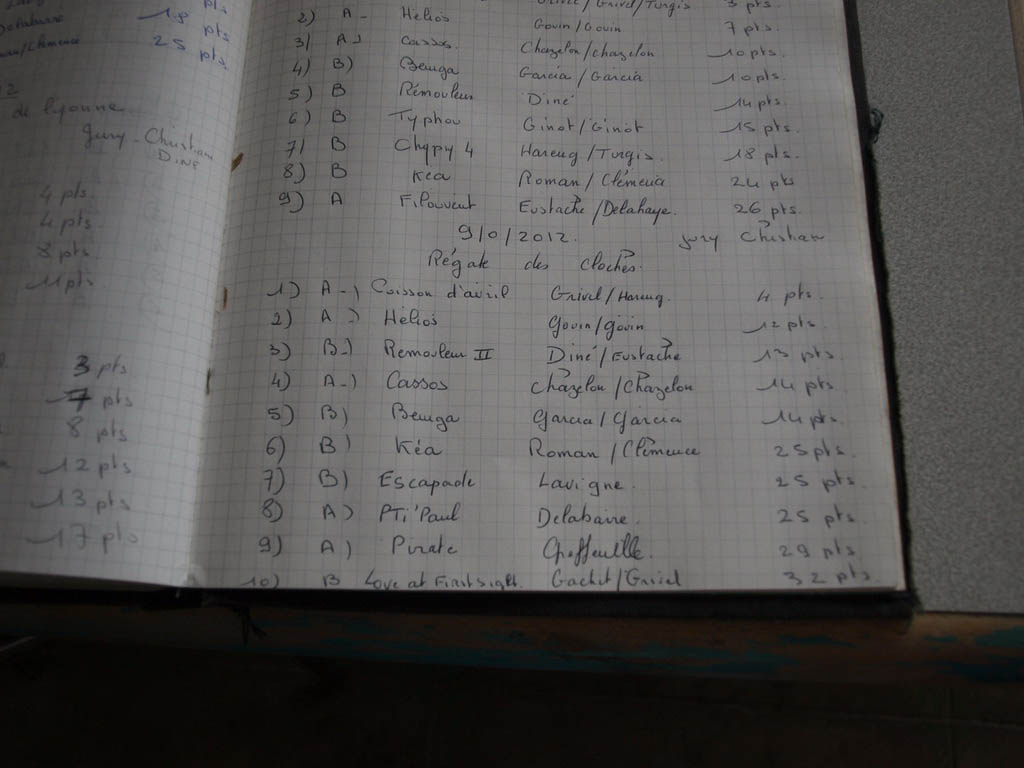 18 pts
Delabaire
25 pts.
de lyonne.
Jury - Christian
DINÉ
4 pts.
4 pts.
8 pts.
11 pts
3 pts
7 pts
8 pts
12 pts
13 pts
17 pts
Grivel/Turgis 3 pts.
2) A - Hélios Gouin/Gouin 7 pts.
3) A) Cassos. Chazelon/chazelon 10 pts.
4) B) Beluga Garcia/Garcia 10 pts.
5) B Rémouleur Diné 14 pts.
6) B Typhou Ginot/Ginot 15 pts.
7) B Chypy 4 Hareng/Turgis. 18 pts.
8) B Kéa Roman/Clémence 24 pts
9) A Filouvent Eustache/Delahaye. 26 pts.
9/0/2012. jury Christian
Régate des cloches.
1) A-) Coisson d'avril Grivel/Hareng. 4 pts.
2) A-) Hélios Gouin/gouin 12 pts.
3) B-) Remouleur II Diné/Eustache 13 pts.
4) A-) Cassos chazelon/Chazelon 14 pts.
5) B) Beluga Garcia/Garcia 14 pts.
6) B) Kéa Roman/Clémence 25 pts.
7) B) Escapade Lavigne. 25 pts.
8) A) PTi'Paul Delabaire. 25 pts.
9) A) Pirate 29 pts.
10) B Love at First sight. Gachet/Grivel 32 pts.